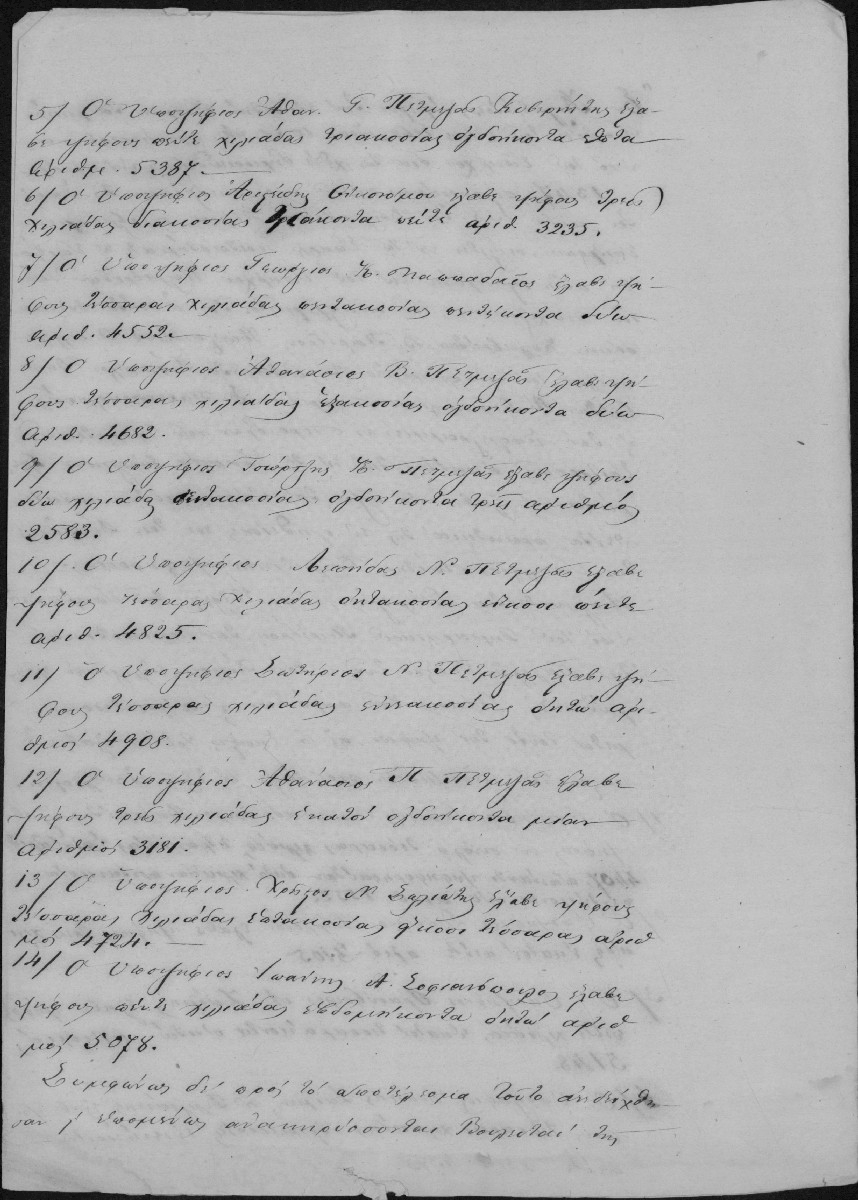 5/ Ὁ Ὑποψήφιος Ἀθαν. Γ. Πετμεζᾶς Κυβερνήτης ἔλα-
βε ψήφους πέντε χιλιάδας τριακοσίας ὀγδοήκοντα ἑπτα
ἀριθμ. 5387.
6/ Ὁ Ὑποψήφιος Ἀριστείδης Οἰκονόμου ἔλαβε ψήφους τρεῖς
χιλιάδας διακοσίας τριάκοντα πέντε ἀριθ. 3235.
7/ Ὁ Ὑποψήφιος Γεώργιος Παππαδαῖος ἔλαβε ψή-
φους τέσσαρας χιλιάδας πεντακοσίας πεντήκοντα δύω
ἀριθ. 4552.
8/ Ὁ Ὑποψήφιος Ἀθανάσιος Β. Πετμεζᾶς ἔλαβε ψή-
φους τέσσαρας χιλιάδας ἑξακοσίας ὀγδοήκοντα δύω
ἀριθ. 4682.
9/ Ὁ Ὑποψήφιος Γεώρτζης Πετμεζᾶς ἔλαβε ψήφους
δύω χιλιάδας πεντακοσίας ὀγδοήκοντα τρεῖς ἀριθμός
2583.
10/. Ὁ Ὑποψήφιος Λεωνίδας Ν. Πετμεζᾶς ἔλαβε
ψήφους τέσσαρας χιλιάδας ὀκτακοσίας εἴκοσι πέντε
ἀριθ. 4825.
11/ Ὁ Ὑποψήφιος Σωτήριος Ν. Πετμεζᾶς ἔλαβε ψή-
φους τέσσαρας χιλιάδας ἐννεακοσίας ὀκτώ ἀρι-
θμός 4908.
12/ Ὁ Ὑποψήφιος Ἀθανάσιος Π Πετμεζᾶς ἔλαβε
ψήφους τρεῖς χιλιάδας ἑκατόν ὀγδοήκοντα μίαν
ἀριθμός 3181.
13/ Ὁ Ὑποψήφιος Χρῆστος Ν Σαλιώτης ἔλαβε ψήφους
τέσσαρας χιλιάδας ἑπτακοσίας εἴκοσι τέσσαρας ἀριθ
μός 4724.
14/ Ὁ Ὑποψήφιος Ἰωάννης Α. Σοφιανόπουλος ἔλαβε
ψήφους πέντε χιλιάδας ἑβδομήκοντα ὀκτώ ἀριθ
μός 5078.
Συμφώνως δέ πρός τό ἀποτέλεσμα τοῦτο ἀνεδείχθη-
σαν κ' ἑπομένως ἀνακηρύσσονται Βουλευταί τῆς